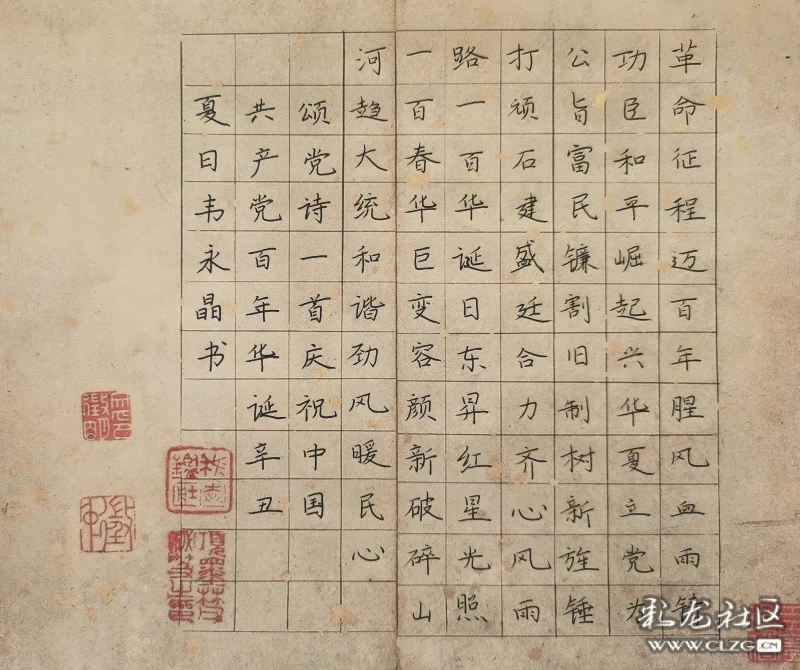 革命征程迈百年腥风血雨铸
功臣和平崛起兴华夏立党为
公旨富民镰割旧制树新旌锤
打顽石建盛廷合力齐心风雨
路一百华诞日东昇红星光照
一百春华巨变容颜新破碎山
河趋大统和谐劲风暖民心
颂党诗一首庆祝中国
共产党百年华诞辛丑
夏日韦永晶书
彩龙社区
WWW.CLZG.CN